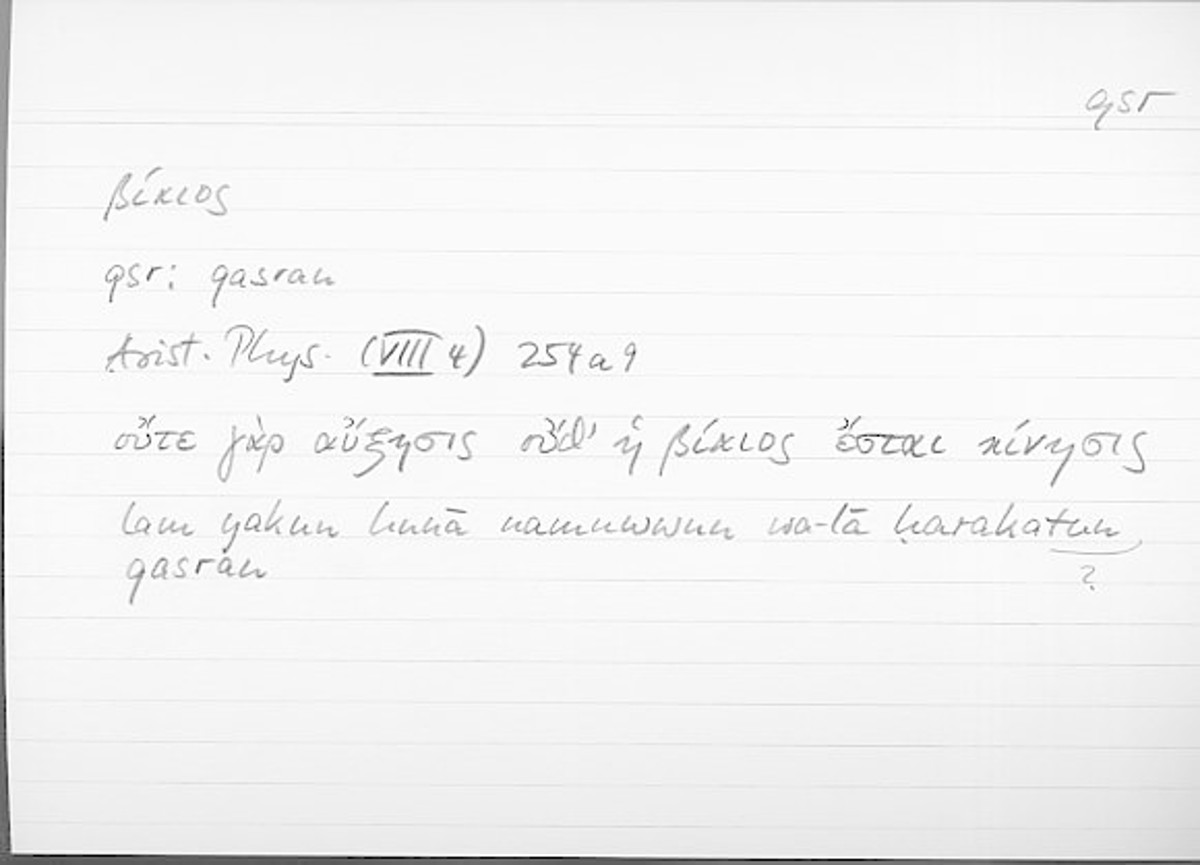 qsr
βίαιος
qsr: qasran
Arist. Phys. (VIII 4) 254a9
οὔτε γὰρ αὔξησις οὔθ' ἡ βίαιος ἔσται κίνησις
lam yakun hunā namuwwun wa-lā ḥarakatun
qasran ?